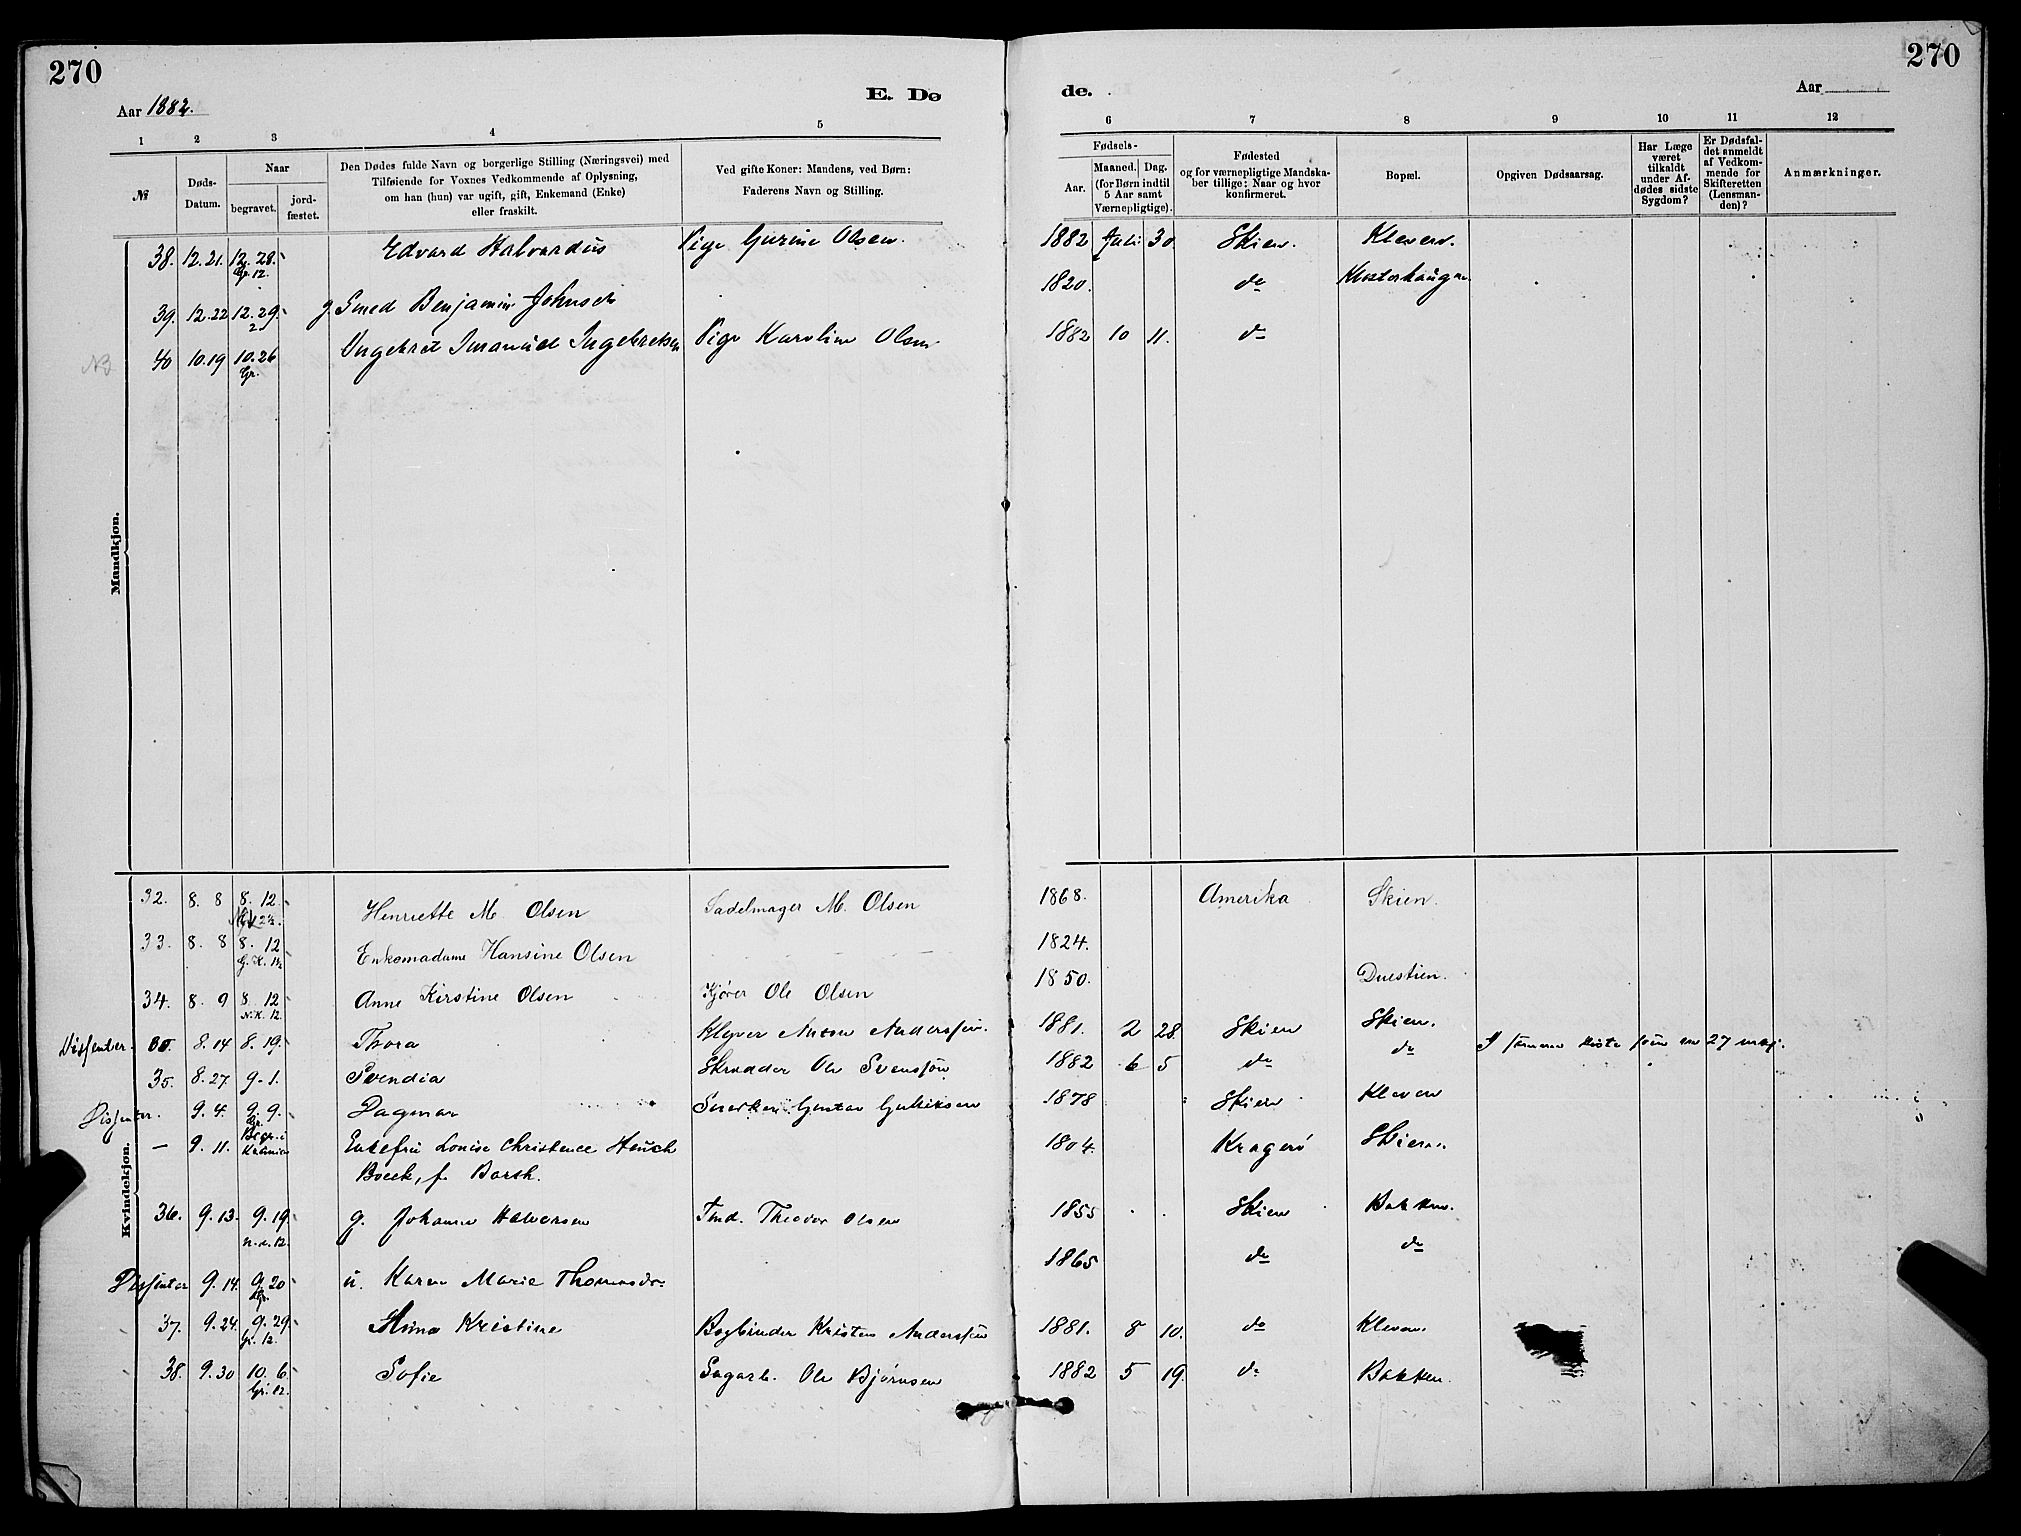 270
Aar 1882.
E. Dø
1 2 3 4 5
№
Døds-
Datum.
Naar
begravet.
jord-
fæstet.
Den Dødes fulde Navn og borgerlige Stilling (Næringsvei) med
Tilføiende for Voxnes Vedkommende af Oplysning,
om han (hun) var ugift, gift, Enkemand (Enke)
eller fraskilt.
Ved gifte Koner: Mandens, ved Børn:
Faderens Navn og Stilling.
Mandkjøn.
38. 12.21. 12. 28. Edvard Halvardus Pige Gurine Olsen.
Gr. 12.
39. 12.22 12.29. g. Smed Benjamin Johnsen
2
NB 40 10.19 10.26 Ingebret Imanuel Ingebretsen Pige Karoline Olsen
Gr.
Kvindekjøn.
32. 8. 8 8. 12. Henriette M. Olsen Sadelmager M. Olsen
33. 8. 8 8. 12 Enkemadame Hansine Olsen
G. K. 1½
34. 8. 9 8. 12 Anne Kirstine Olsen Kjører Ole Olsen
N.K. 12.
Dissenter. 8.14 8.19. Thora Anderssen.
35. 8.27. 9.1. Svendia Skrædder Ole Svenssøn
Dissenter. 9.4. 9.9. Dagmar Snedker Gustav Gulliksen
Gr.
— 9.11. Begr. i Enkefru Louise Christence Heuch
Boeck, f. Barth.
36. 9.13. 9.19. g. Johanne Halvorsen Tmd. Theodor Olsen
n.k.12.
Dissenter 9.14. 9.20 u. Karen Marie Thomasdr.
Gr.
37. 9.24. 9.29. Anna Kristine Bogbinder Kristen Anderssøn
Gr. 12.
38. 9.30 10. 6. Sofie Sagarb. Ole Bjørnsen
Gr. 12.
270
de.
Aar
6 7 8 9 10 11 12
Fødsels-
Aar.
Maaned. Dag.
(for Børn indtil
5 Aar samt
Værnepligtige).
Fødested
og for værnepligtige Mandska-
ber tillige: Naar og hvor
konfirmeret.
Bopæl.
Opgiven Dødsaarsag.
Har Læge
været
tilkaldt
under Af-
dødes sidste
Sygdom?
Er Dødsfal-
det anmeldt
af Vedkom-
mende for
Skifteretten
(Lensman-
den)?
Anmærkninger.
1882 Juli 30 Skien. Kleven.
1820. do Klosterhaugen
1882 10 11. do
1868. Amerika Skien.
1824.
1850. Duestien.
1881. 2 28. Skien Skien.
1882 6 5 do do I samme Kiste som
1878 Skien Kleven
1804. Kragerø Skien.
1855 Skien Bakken.
1865 do do
1881. 8 10. do Kleven.
1882 5 19. do Bakken.